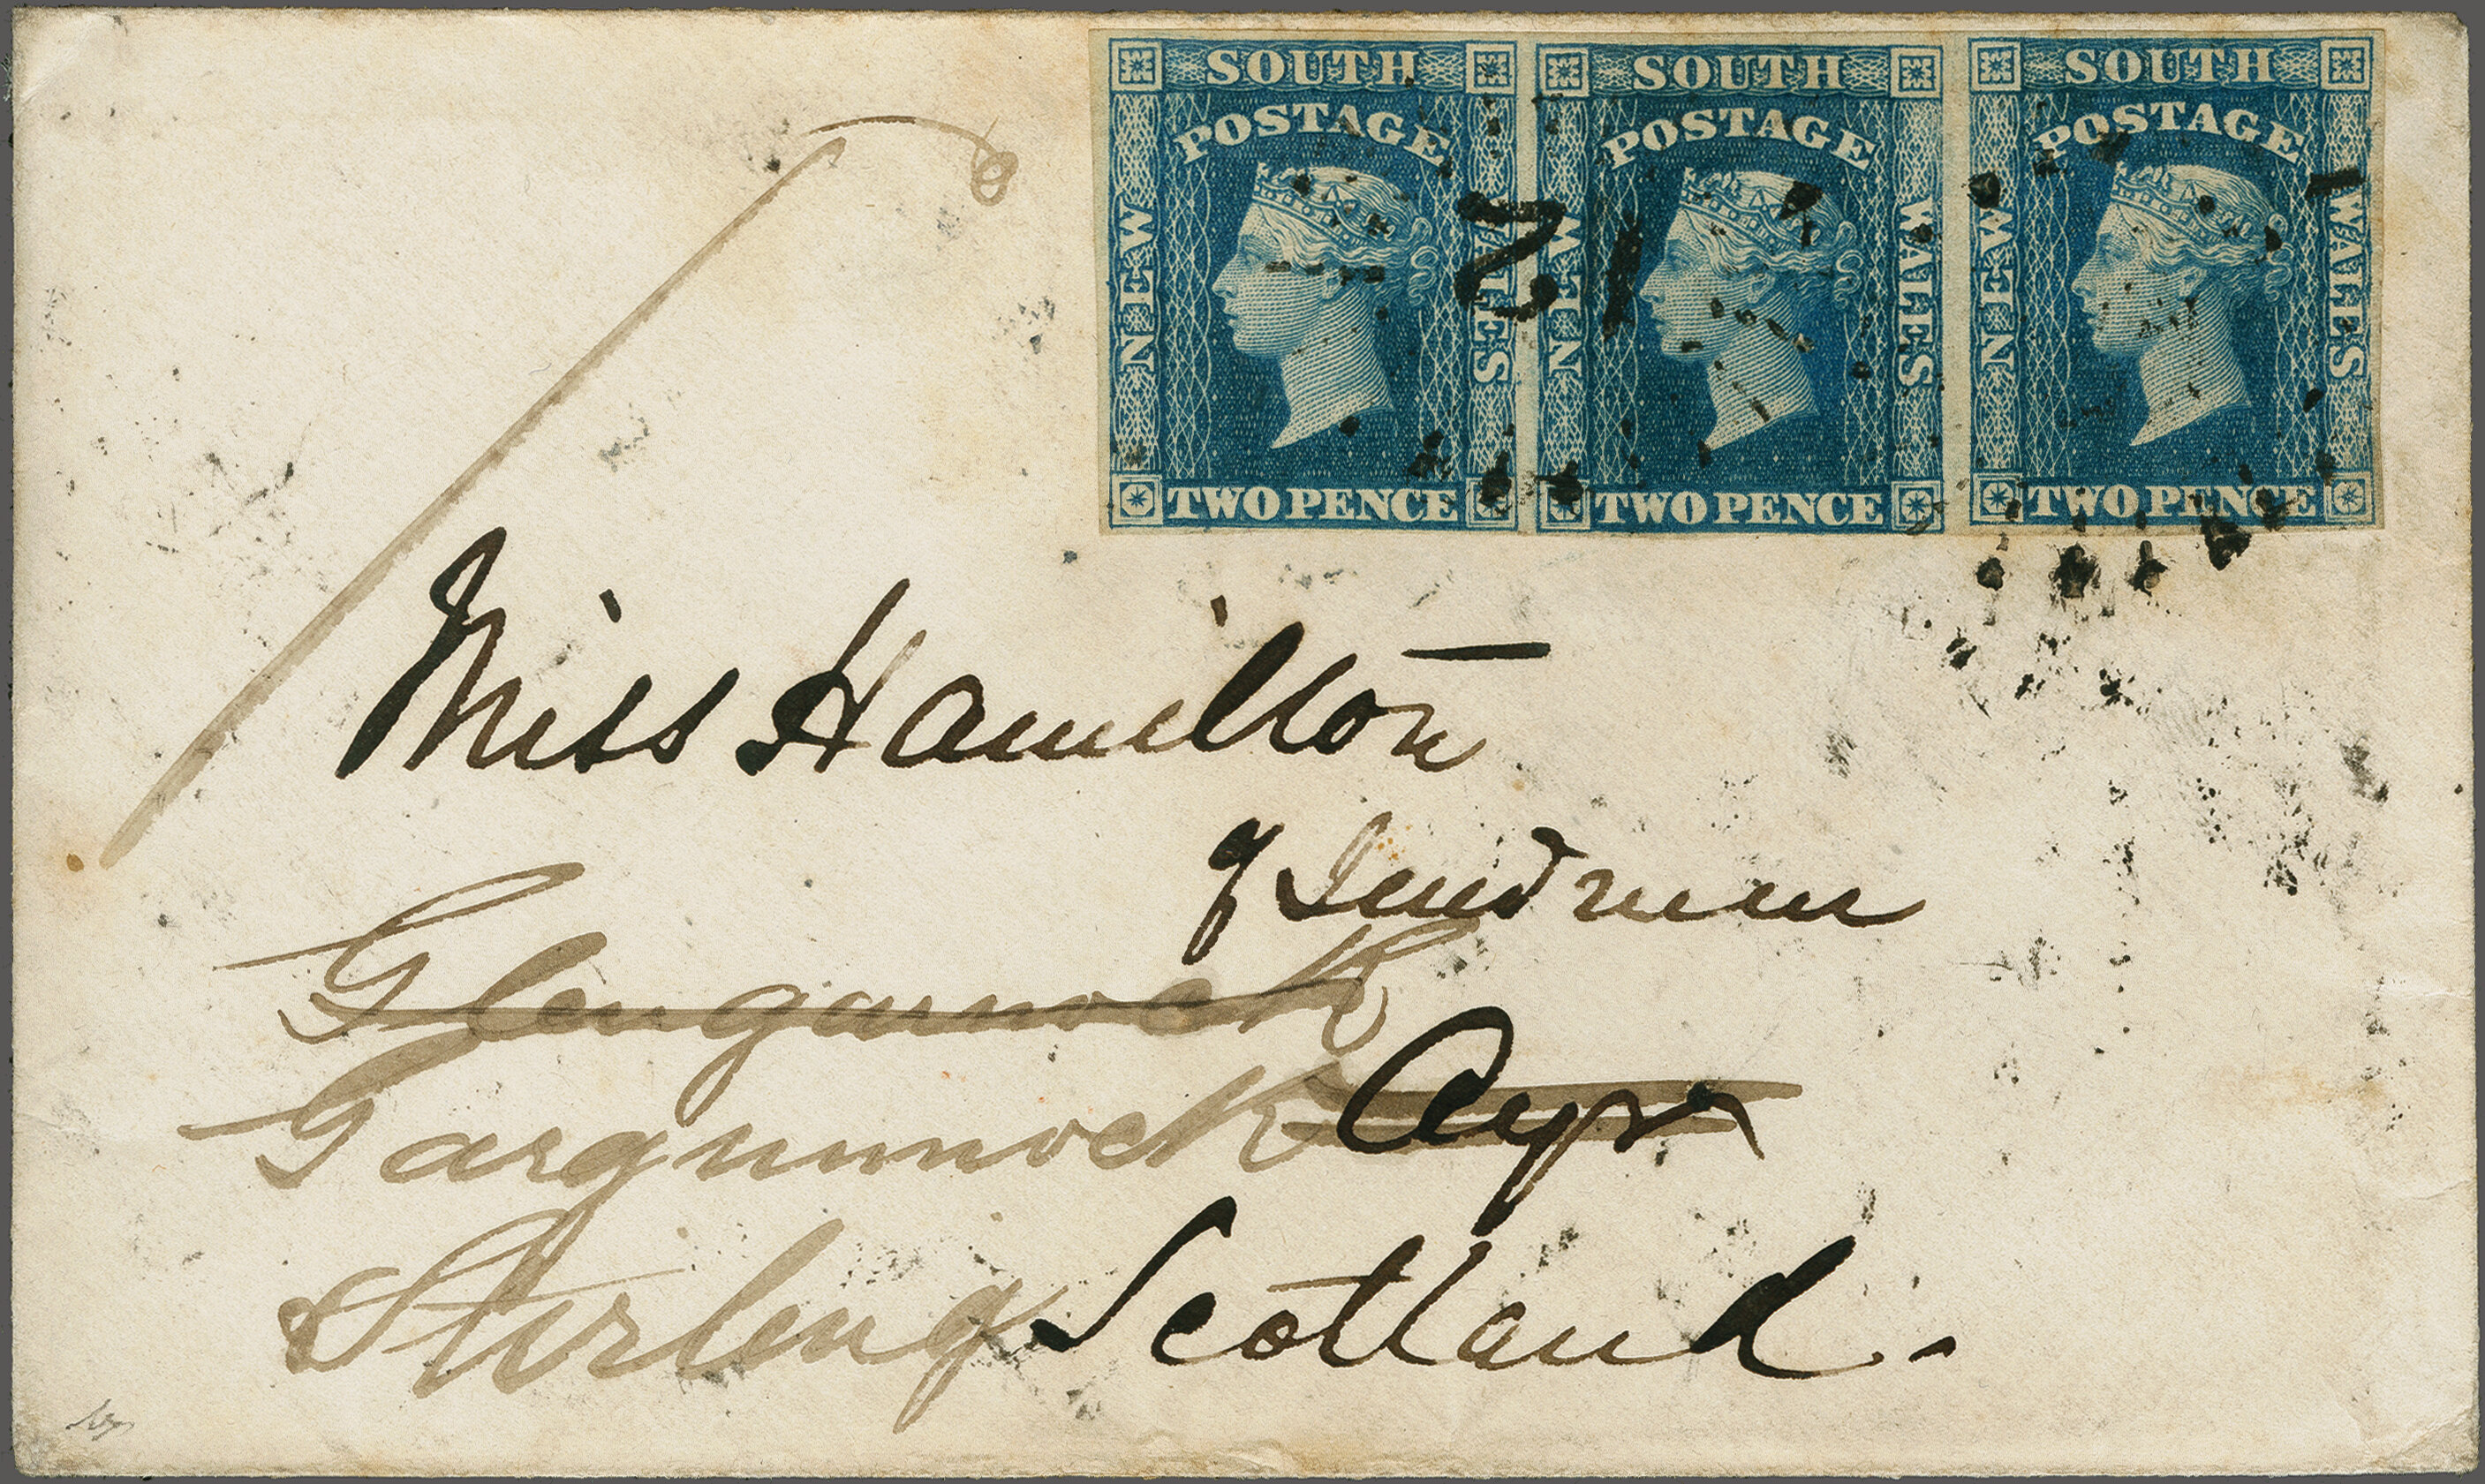 SOUTH SOUTH SOUTH
POSTAGE POSTAGE POSTAGE
NEW WALES NEW WALES NEW WALES
12
TWO PENCE TWO PENCE TWO PENCE
Miss Hamilton
of Sundrum
Glengarnock
Ayr
Gargunnock
Stirling Scotland.